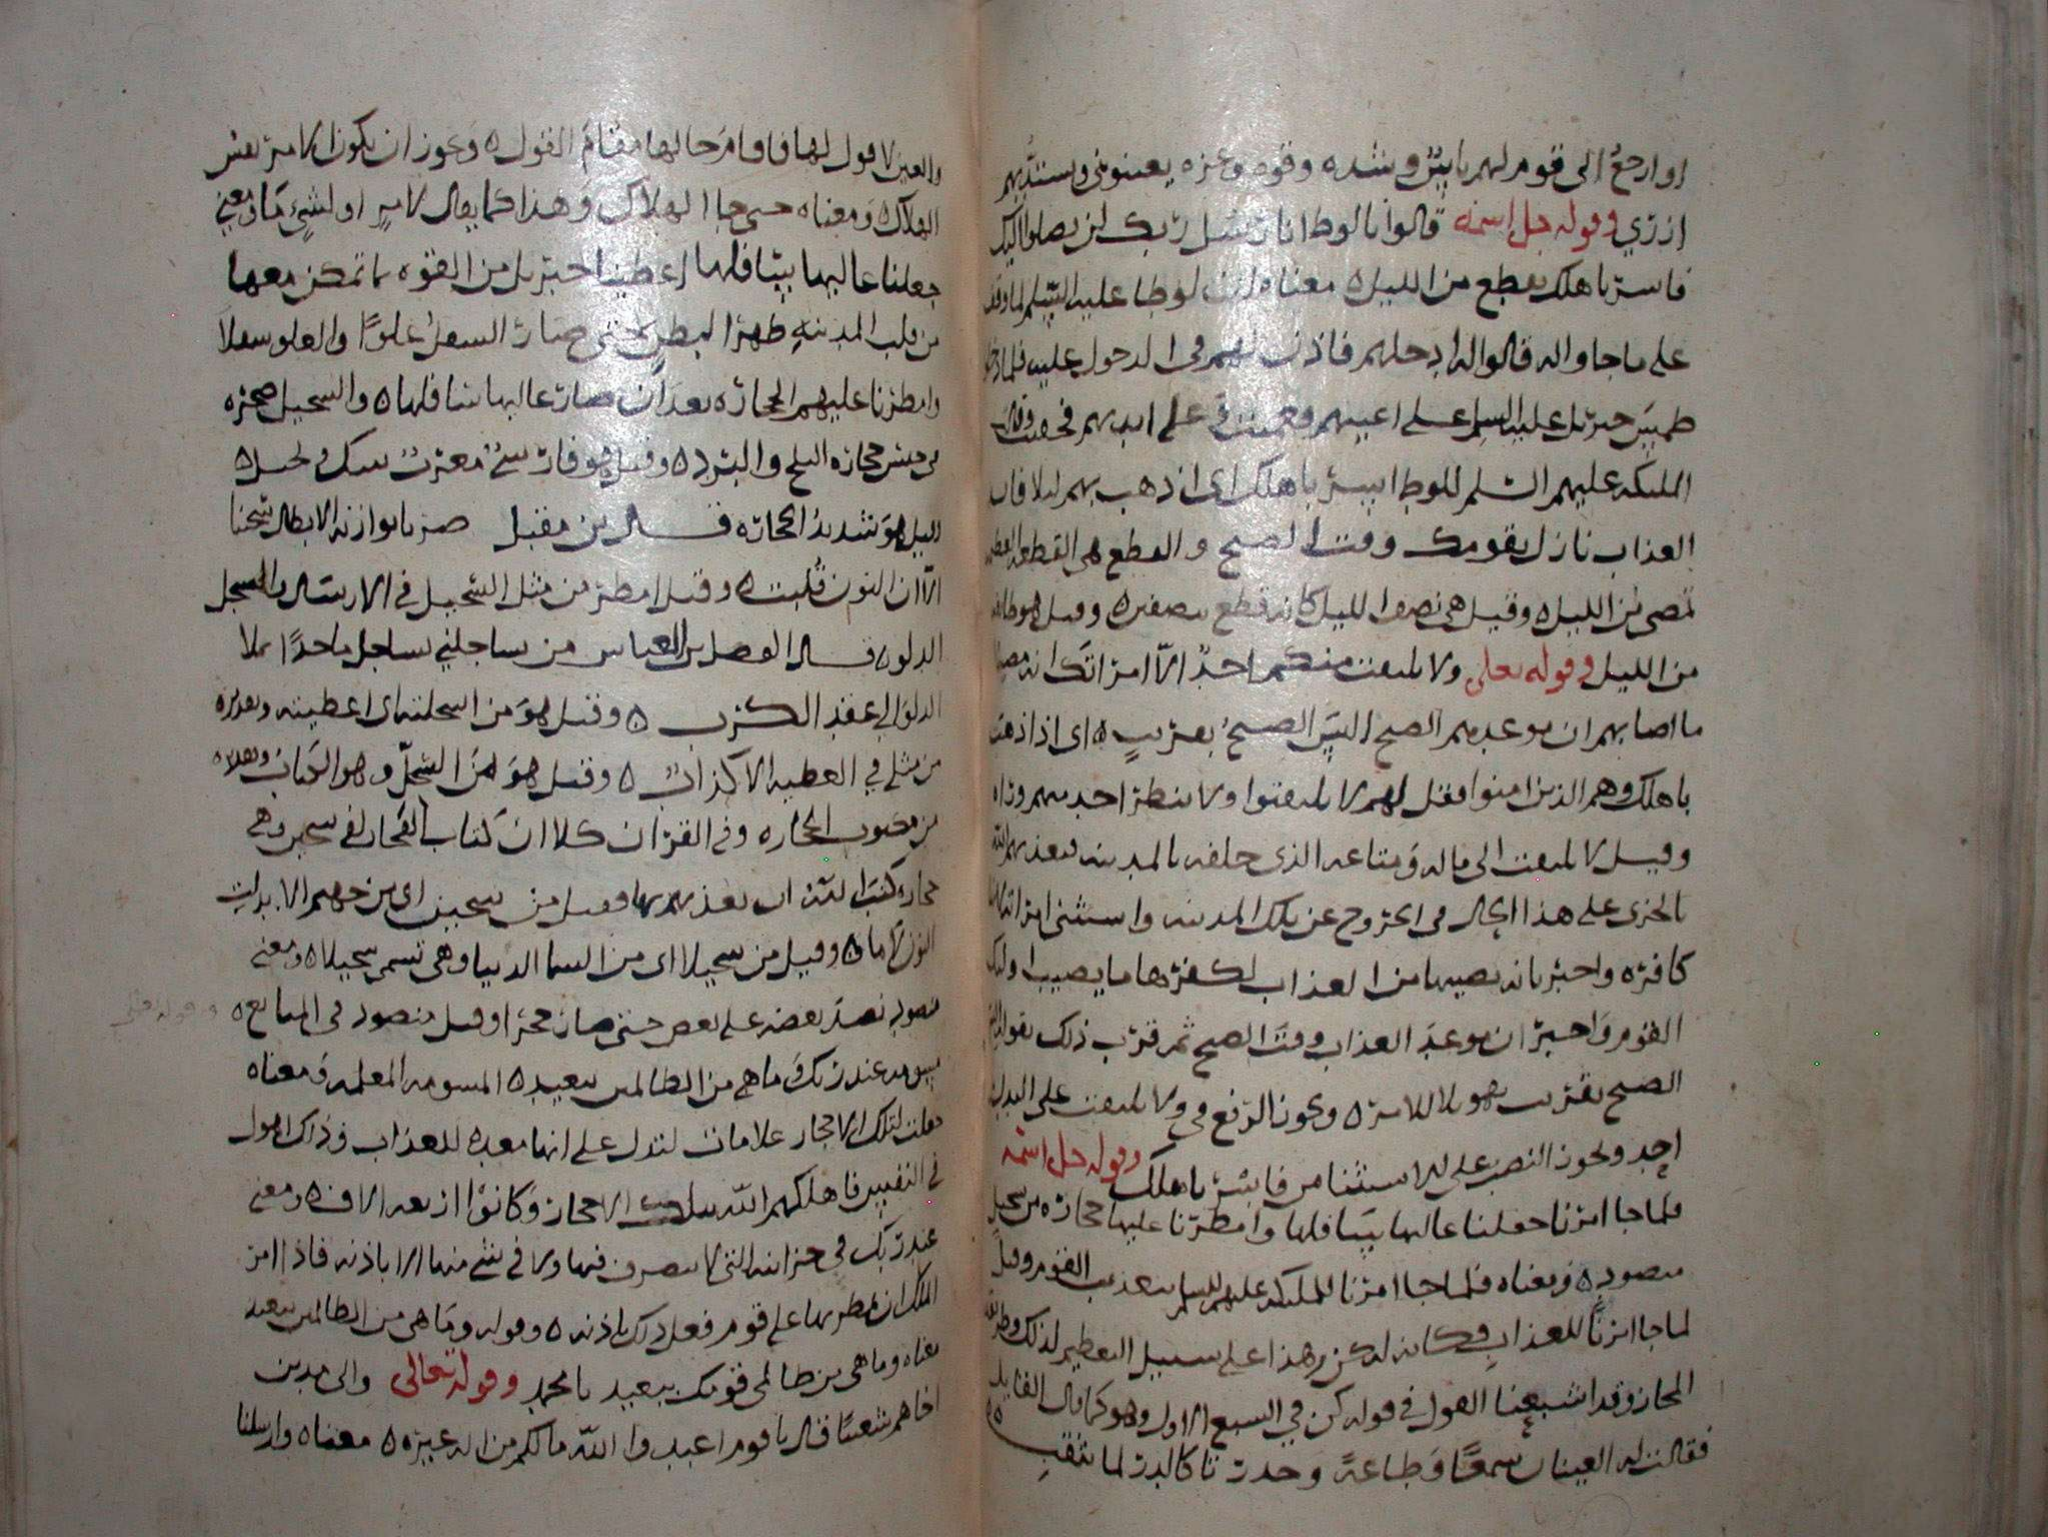 او ارجع الى قوم لهم باس وشده وقوه وعزه يعينوني ويشتد بهم
ازري وقوله جل اسمه قالوا يا لوط انا رسل ربك لن يصلوا اليك
فاسر باهلك بقطع من الليل ٥ معناه ان لوطا عليه السلم لما وقف
على ما جاوا له قالوا له ادخلهم فاذن لهم في الدخول عليه فلما دخلوا
طمس جبريل عليه السلم على اعينهم وعلى ايديهم فجفت وقالت
المليكه عليهم السلم للوط اسر باهلك اى اذهب بهم ليلا فان
العذاب نازل بقومك وقت الصبح والقطع هى القطعه العظيمه
تمضى من الليل ٥ وقيل هى نصف الليل كانه قطع نصفين ٥ وقيل هو طايفه
من الليل وقوله تعلى ولا يلتفت منكم احدٌ الّا امراتك انه مصيبها
ما اصابهم ان موعدهم الصبح اليس الصبحُ بقريبٍ ٥ اى اذا ذهبت
باهلك وهم الذين امنوا فقل لهم لا يلتفتوا ولا ينظر احد منهم وراه
وقيل لا يلتفت الى ماله ومتاعه الذى خلفه بالمدينه فيعذبهم الله
بالحزن على هذا الحال في الخروج عن تلك المدينه واستثنى امراته لانها
كافره واخبر بانه يصيبها من العذاب لكفرها ما يصيب اوليك
القوم واخبر ان موعد العذاب وقت الصبح ثم قرب ذلك بقوله اليس
الصبح بقريب تهويلا للامر ٥ ويجوز الرفع في ولا يلتفت على البدل من
احد ويجوز النصب على الاستثنا من فاسر باهلك وقوله جل اسمه
فلما جا امرنا جعلنا عاليها سافلها وامطرنا عليها حجاره من سجيل
منضود ٥ ومعناه فلما جا امرنا للمليكه عليهم السلم بتعذيب القوم وقيل
لما جا امرنا للعذاب فكانه له كن وهذا على سبيل التعظيم لذلك وطريقه
المجاز وقد اشبعنا القول في قوله كن في السبع الاول وهو كما قال القايل
فقالت له العينان سمعًا وطاعةً وحدرتا كالدر لما يثقبِ
والعين لا قول لها فاقام حالها مقام القول ٥ ويجوز ان يكون الامر نفس
الهلاك ٥ ومعناه حتى جا الهلاك وهذا كما يقال لامرٍ او لشيءٍ ما ومعنى
جعلنا عاليها سافلها اعطينا جبريل من القوه ما تمكن معها
من قلب المدينه ظهرا لبطن حتى صار السفل علوًا والعلو سفلا
وامطرنا عليهم الحجاره بعد ان صار عاليها سافلها ٥ والسجيل صخره
من جنس حجاره الثلج والبرد ٥ وقيل هو فارسىٌ معرب سنك وكل ٥
وقيل هو شديد الحجاره قال بن مقبل ضربا تواز نه الابطال سجنا
الّا ان النون قلبت ٥ وقيل امطر من مثل السجيل في الارسال والسجل
الدلو ٥ قال الفضل بن العباس من يساجلني يساجل ماجدًا يملا
الدلو الى عقد الكرب ٥ وقيل هو من اسجلته اى اعطيته وتقديره
من مثل في العطيه الادرار ٥ وقيل هو من السجلّ وهو الكتاب
من مكتوب الحجاره وفي القران كلا ان كتاب الفجار لفي سجين وهى
حجاره كتب الله ان يعذبهم بها وقيل من سجين اى من جهنم الا بدلت
النون لاما ٥ وقيل من سجيلا اى من السما الدنيا وهى تسمى سجيلا ٥ ومعنى
منضود نضد بعضه على بعض حتى صار حجرا وقيل منضود في التتابع ٥ وقوله تعالى
مسومه عند ربك وما هي من الظالمين ببعيد ٥ المسومه المعلمه ومعناه
جعلت لتلك الاحجار علامات لتدل على انها معده للعذاب وذاك اهول
في النفس فاهلكهم الله بتلك الاحجار وكانوا اربعه الاف ٥ ومعنى
عند ربك في خزاينه التي لا يتصرف فيها ولا في شى منها الا باذنه فاذا امر
الملك ان يمطر بها على قوم فعل ذلك باذنه ٥ وقوله وما هى من الظالمين ببعيد
معناه وما هى من ظالمى قومك ببعيد يا محمد وقوله تعالى والى مدين
اخاهم شعيبًا قال يا قوم اعبدوا الله ما لكم من اله غيره ٥ معناه وارسلنا